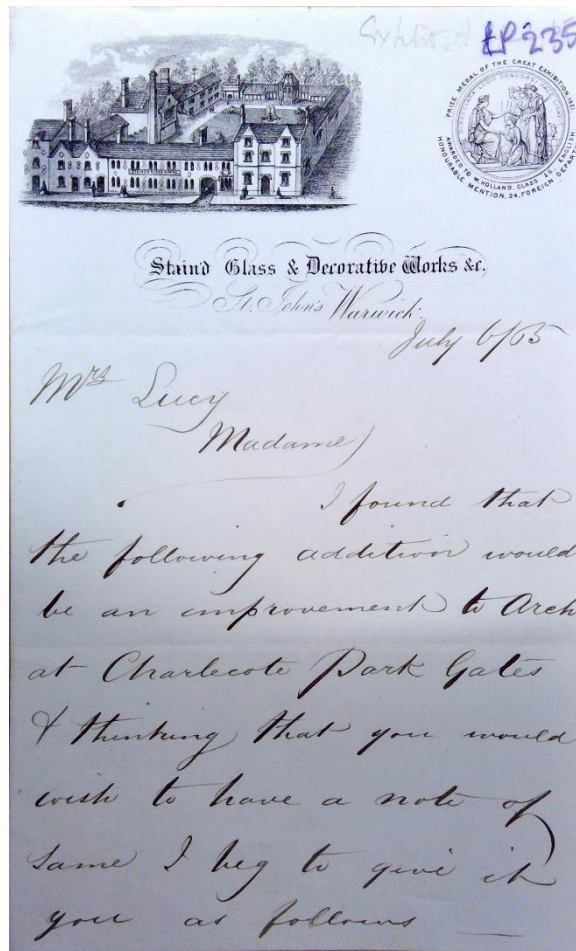 LP 235
PRIZE MEDAL OF THE GREAT EXHIBITION 1851
AWARDED TO W. HOLLAND, GLASS 26, ENGLISH
HONOURABLE MENTION, 24, FOREIGN DEPARTMENT
Stain'd Glass & Decorative Works &c.
St. John's Warwick.
July 6/65
Mrs Lucy
Madame
I found that
the following addition would
be an improvement to Arch
at Charlecote Park Gates
& thinking that you would
wish to have a note of
same I beg to give it
you as follows —